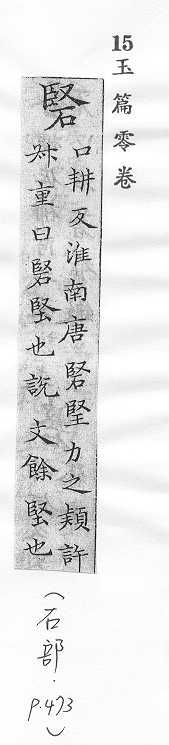 15玉篇零卷
硻
口耕反淮南唐硻堅力之類許
叔重曰硻堅也說文餘堅也
(石部.P.473)